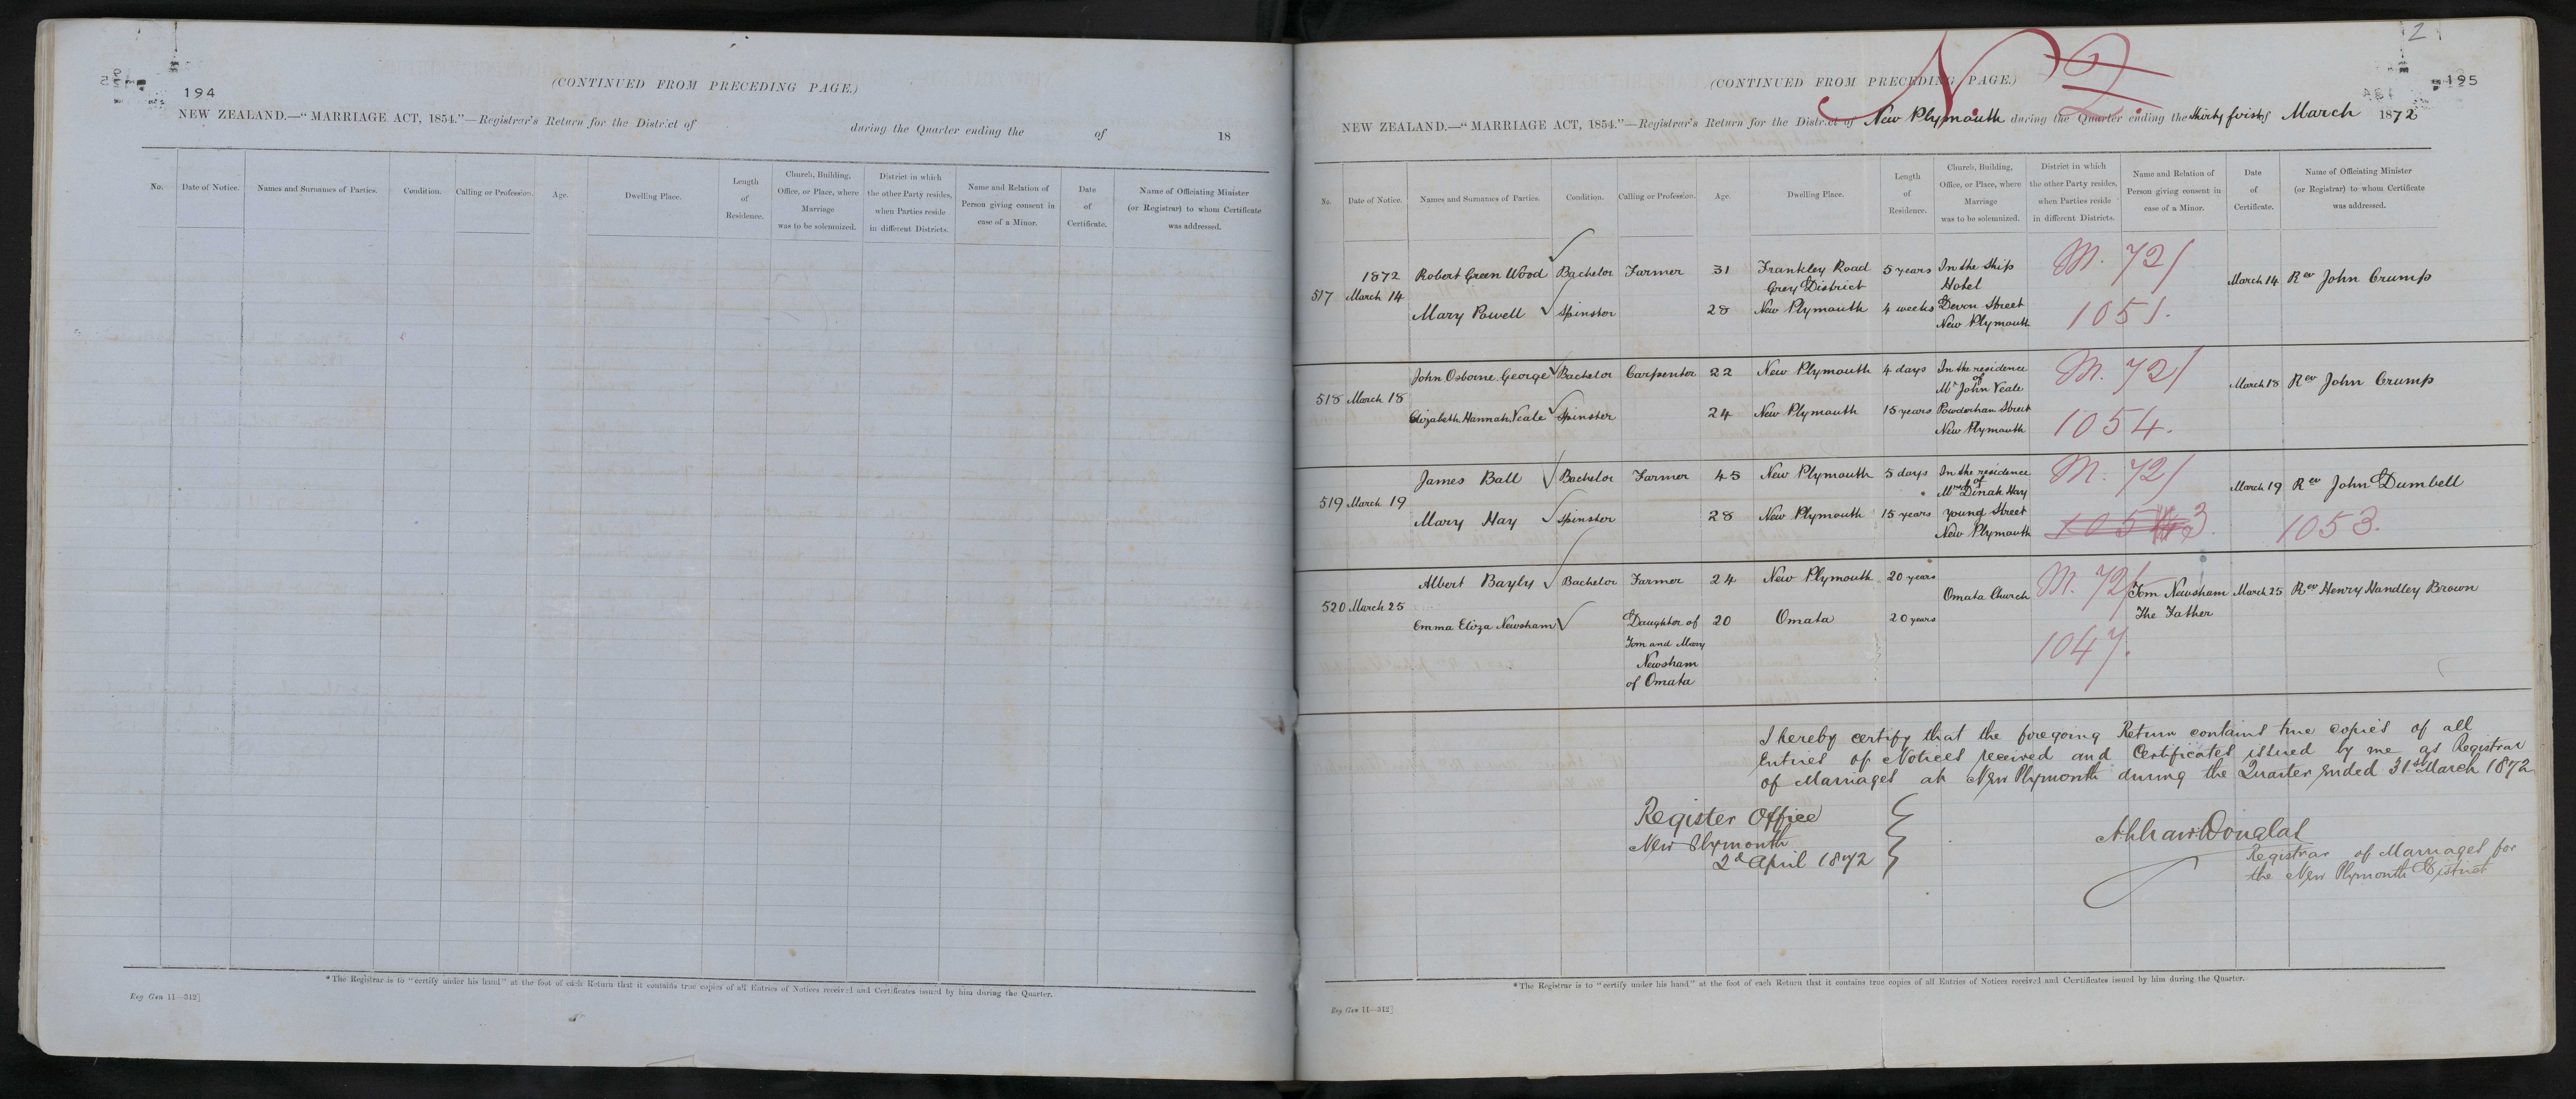 194
(CONTINUED FROM PRECEDING PAGE.)
NEW ZEALAND.—"MARRIAGE ACT, 1854."—Registrar's Return for the District of during the Quarter ending the of 18
No.
Date of Notice.
Names and Surnames of Parties.
Condition.
Calling or Profession.
Age.
Dwelling Place.
Length
of
Residence.
Church, Building,
Office, or Place, where
Marriage
was to be solemnized.
District in which
the other Party resides,
when Parties reside
in different Districts.
Name and Relation of
Person giving consent in
case of a Minor.
Date
of
Certificate.
Name of Officiating Minister
(or Registrar) to whom Certificate
was addressed.
*The Registrar is to "certify under his hand" at the foot of each Return that it contains true copies of all Entries of Notices received and Certificates issued by him during the Quarter.
Reg Gen 11—312]
2
195
(CONTINUED FROM PRECEDING PAGE.)
NEW ZEALAND.—"MARRIAGE ACT, 1854."—Registrar's Return for the District of New Plymouth during the Quarter ending the thirty first of March 1872
No.
Date of Notice.
Names and Surnames of Parties.
Condition.
Calling or Profession.
Age.
Dwelling Place.
Length
of
Residence.
Church, Building,
Office, or Place, where
Marriage
was to be solemnized.
District in which
the other Party resides,
when Parties reside
in different Districts.
Name and Relation of
Person giving consent in
case of a Minor.
Date
of
Certificate.
Name of Officiating Minister
(or Registrar) to whom Certificate
was addressed.
517
1872
March 14
Robert Green Wood Bachelor Farmer 31 Frankley Road
Grey District
5 years
Mary Powell Spinster 28 New Plymouth 4 weeks
In the Ship
Hotel
Devon Street
New Plymouth
M. 72/
1051.
March 14 Rev John Crump
518 March 18
John Osborne George Bachelor Carpenter 22 New Plymouth 4 days
Elizabeth Hannah Veale Spinster 24 New Plymouth 15 years
In the residence
of
Mr John Veale
Powderham Street
New Plymouth
M. 72/
1054.
March 18 Rev John Crump
519 March 19
James Ball Bachelor Farmer 45 New Plymouth 5 days
Mary Hay Spinster 28 New Plymouth 15 years
In the residence
of
Mrs Dinah Hay
Young Street
New Plymouth
M. 72/
March 19 Rev John Dumbell
1053.
520 March 25
Albert Bayly Bachelor Farmer 24 New Plymouth 20 years
Emma Eliza Newsham Daughter of
Tom and Mary
Newsham
of Omata
20 Omata 20 years
Omata Church
M. 72/
1047.
Tom Newsham
The Father
March 25 Rev Henry Handley Brown
I hereby certify that the foregoing Return contains true copies of all
Entries of Notices received and Certificates issued by me as Registrar
of Marriages at New Plymouth during the Quarter ended 31st March 1872
Register Office
New Plymouth
2d April 1872
Douglas
Registrar of Marriages for
the New Plymouth District
*The Registrar is to "certify under his hand" at the foot of each Return that it contains true copies of all Entries of Notices received and Certificates issued by him during the Quarter.
Reg Gen 11—312]